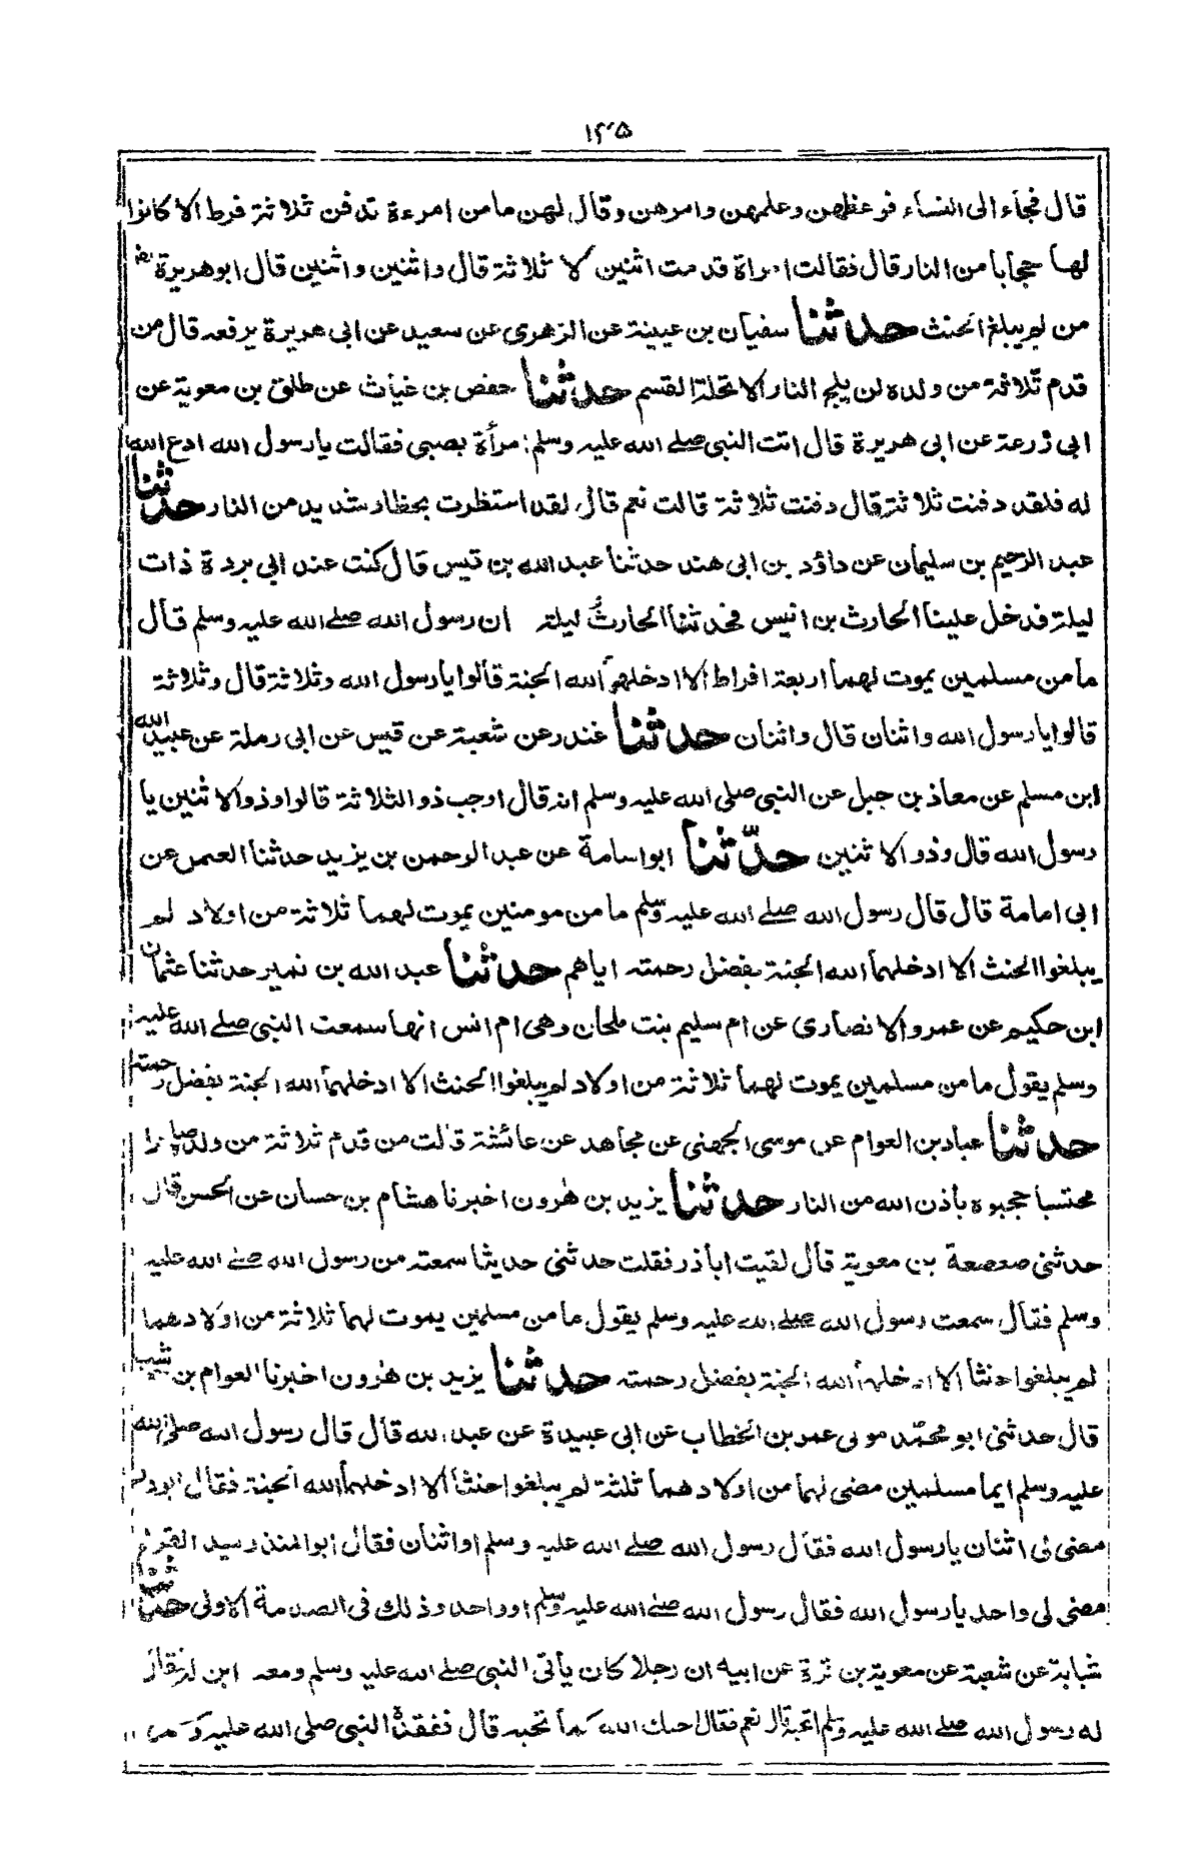 ١٣٥
قال فجاء الى النساء فوعظهن وعلمهن وامرهن وقال لهن ما من امرءة تدفن ثلاثة فرط الا كانوا
لها حجابا من النار قال فقالت امراة قدمت اثنين لا ثلاثة قال واثنين واثنين قال ابو هريرة
من لم يبلغ الحنث حدثنا سفيان بن عيينة عن الزهرى عن سعيد عن ابى هريرة يرفعه قال من
قدم ثلاثة من ولده لن يلج النار الا تحلة القسم حدثنا حفص بن غياث عن طلق بن معوية عن
ابى زرعة عن ابى هريرة قال اتت النبى صلے الله عليه وسلم امرأة بصبى فقالت يا رسول الله ادع الله
له فلقد دفنت ثلاثة قال دفنت ثلاثة قالت نعم قال لقد استظرت بحظار شديد من النار حدثنا
عبد الرحيم بن سليمان عن داؤد بن ابى هند حدثنا عبد الله بن قيس قال كنت عند ابى بردة ذات
ليلة فدخل علينا الحارث بن انيس فحدثنا الحارث ليلة ان رسول الله صلے الله عليه وسلم قال
ما من مسلمين يموت لهما اربعة افراط الا ادخلهم الله الجنة قالوا يا رسول الله وثلاثة قال وثلاثة
قالوا يا رسول الله واثنان قال واثنان حدثنا غندر عن شعبة عن قيس عن ابى رملة عن عبيد الله
ابن مسلم عن معاذ بن جبل عن النبى صلى الله عليه وسلم انه قال اوجب ذو الثلاثة قالوا وذو الاثنين يا
رسول الله قال وذو الاثنين حدّثنا ابو اسامة عن عبد الرحمن بن يزيد حدثنا العمى عن
ابى امامة قال قال رسول الله صلے الله عليه وسلم ما من مومنين يموت لهما ثلاثة من اولاد لم
يبلغوا الحنث الا ادخلهما الله الجنة بفضل رحمته اياهم حدثنا عبد الله بن نمير حدثنا عثمان
ابن حكيم عن عمرو الانصارى عن ام سليم بنت ملحان وهى ام انس انها سمعت النبى صلے الله عليه
وسلم يقول ما من مسلمين يموت لهما ثلاثة من اولاد لم يبلغوا الحنث الا ادخلهما الله الجنة بفضل رحمته
حدثنا عباد بن العوام عن موسى الجهنى عن مجاهد عن عائشة قالت من قدم ثلاثة من ولده صابرا
محتسبا حجبوه باذن الله من النار حدثنا يزيد بن هٰرون اخبرنا هشام بن حسان عن الحسن قال
حدثنى صعصعة بن معوية قال لقيت اباذر فقلت حدثنى حديثا سمعته من رسول الله صلے الله عليه
وسلم فقال سمعت رسول الله صلے الله عليه وسلم يقول ما من مسلمين يموت لهما ثلاثة من اولادهما
لم يبلغوا حنثا الا ادخلهما الله الجنة بفضل رحمته حدثنا يزيد بن هٰرون اخبرنا العوام بن
قال حدثنى ابو محمّد مولى عمر بن الخطاب عن ابى عبيدة عن عبد الله قال قال رسول الله صلى الله
عليه وسلم ايما مسلمين مضى لهما من اولادهما ثلثة لم يبلغوا حنثا الا ادخلهما الله الجنة فقال ابوذر
مضى لى اثنان يا رسول الله فقال رسول الله صلے الله عليه وسلم او اثنان فقال ابو المنذر سيد القراء
مضى لى واحد يا رسول الله فقال رسول الله صلے الله عليه وسلم او واحد وذلك فى الصدمة الاولى حدثنا
شبابة عن شعبة عن معوية بن قرة عن ابيه ان رجلا كان يأتى النبى صلے الله عليه وسلم ومعه ابن له فقال
له رسول الله صلے الله عليه وسلم اتحبه قال نعم فقال احبك الله كما تحبه قال ففقده النبى صلى الله عليه